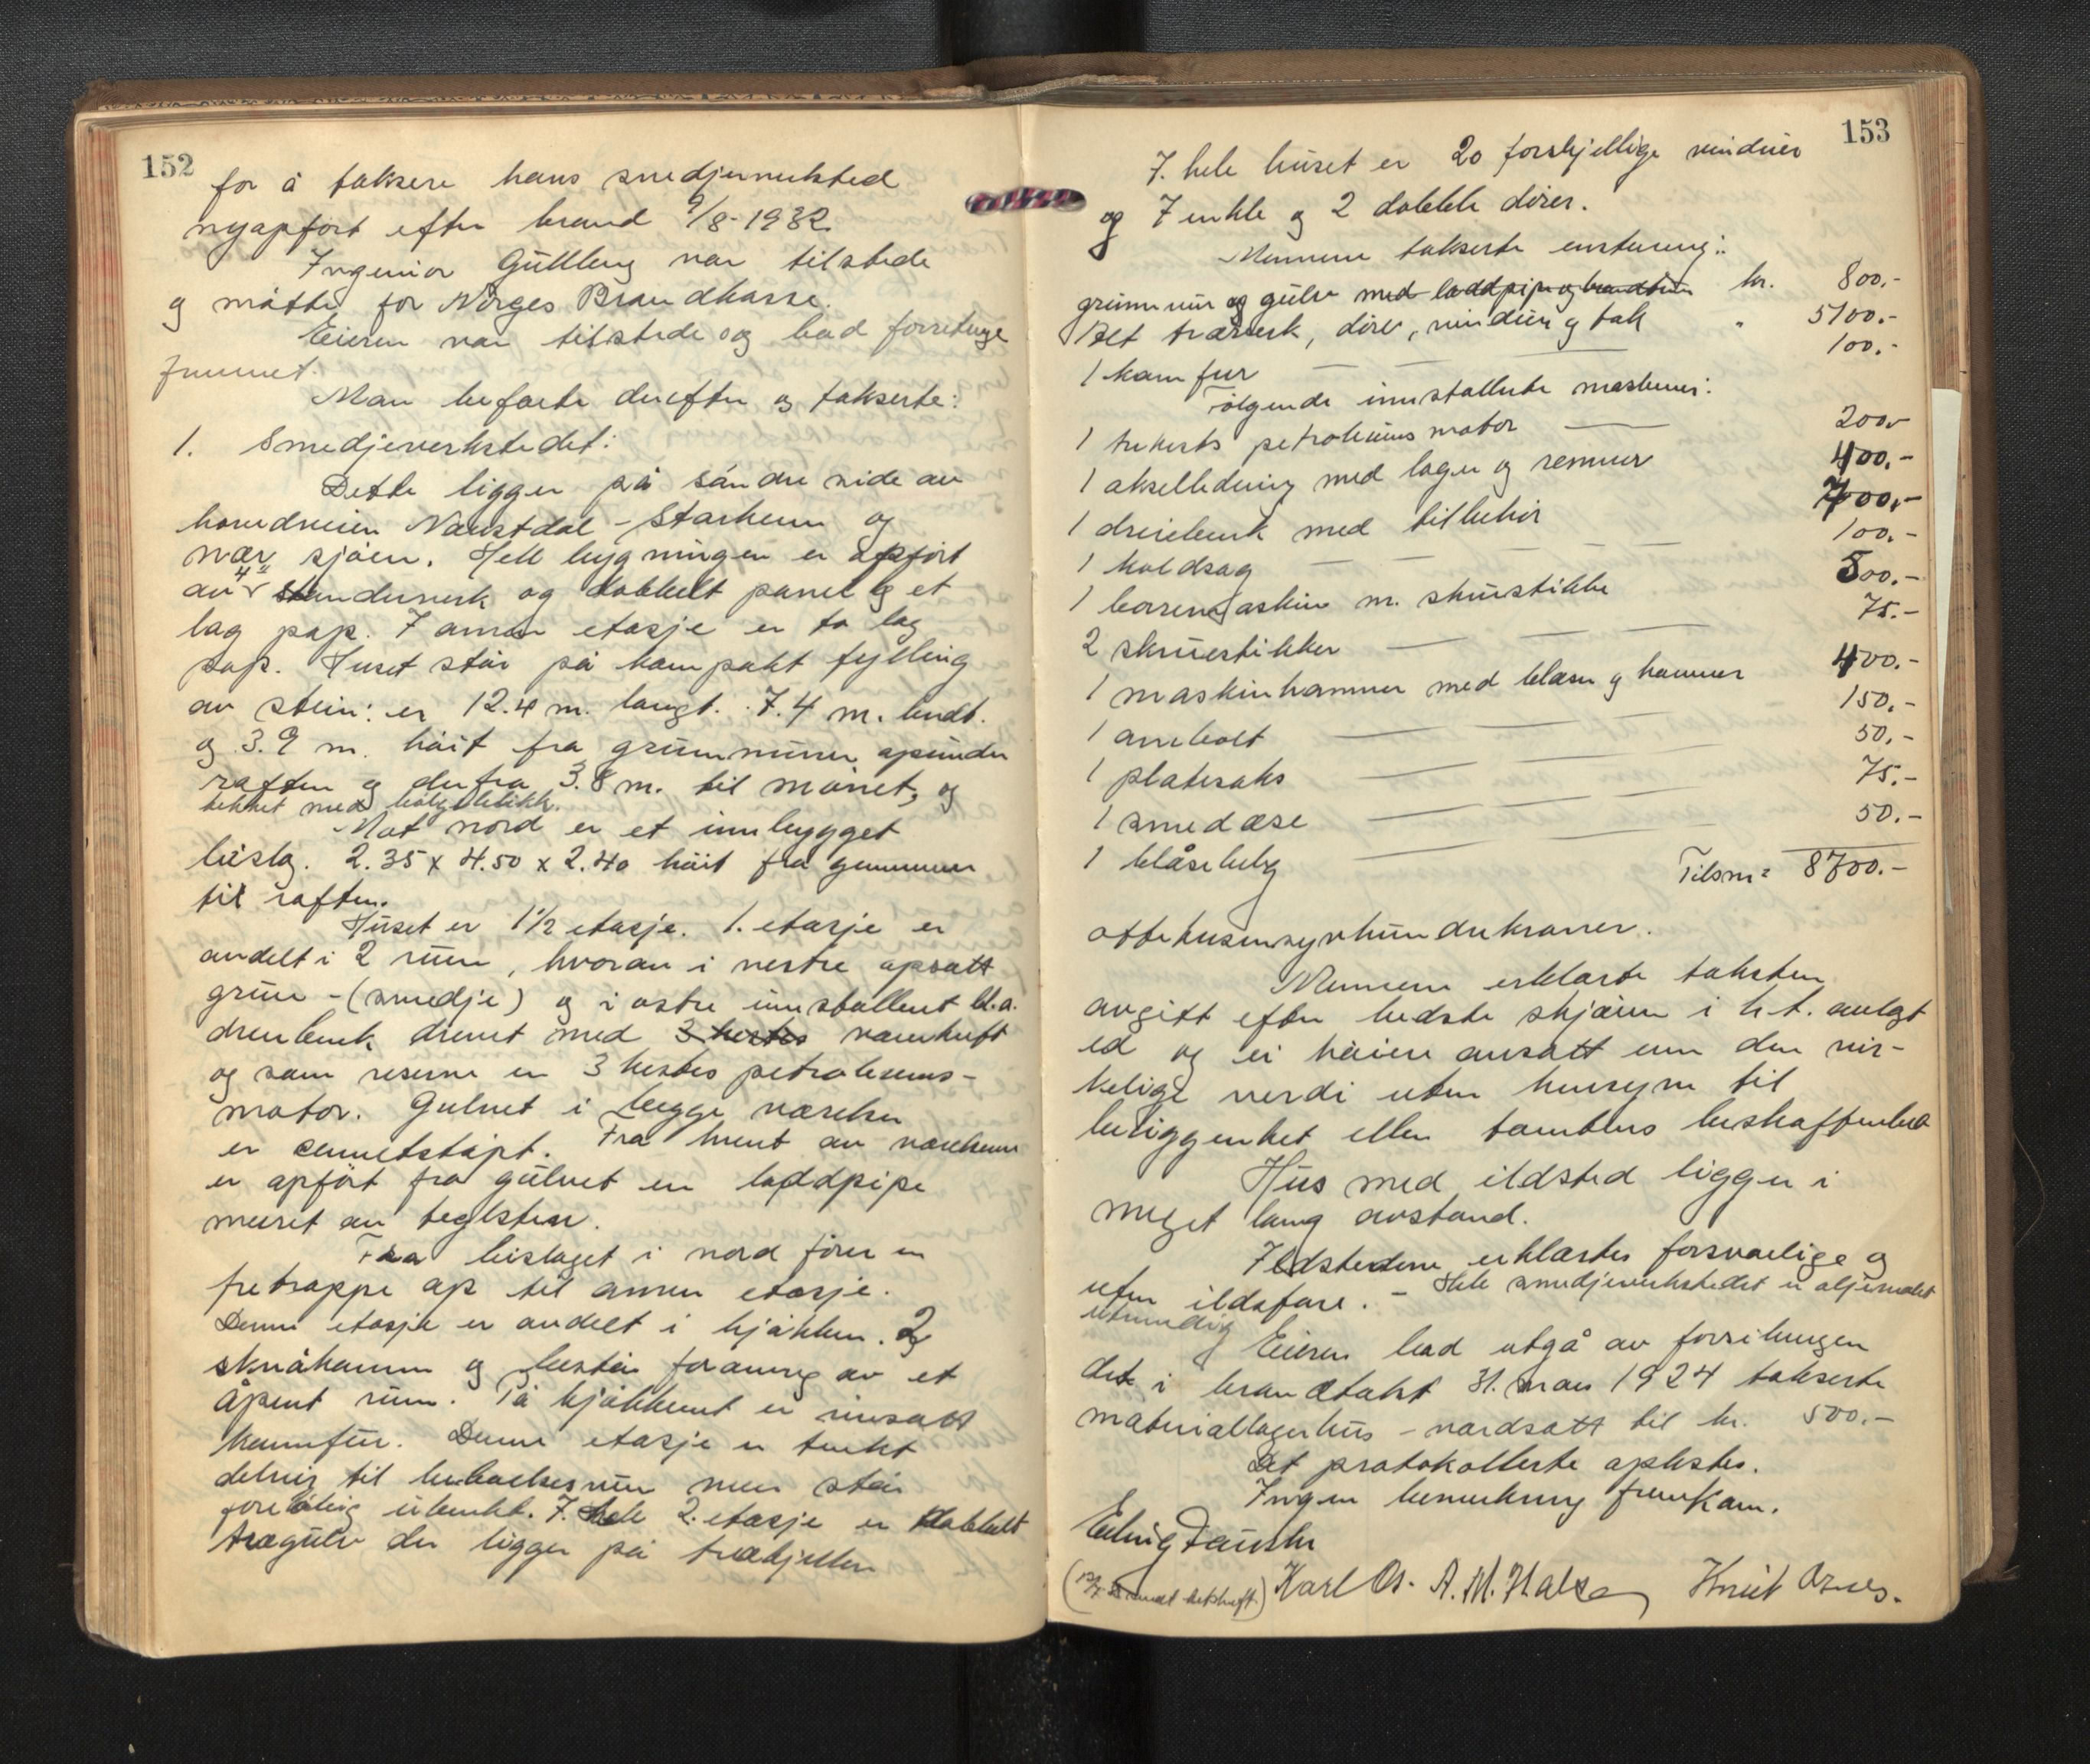 152
for å taksere hans smedjeverksted
nyopført efter brand 9/8-1932
Ingeniør Gulleng var tilstede
og møtte for Norges Brandkasse.
Eieren var tilstede og bad forretninge
fremmet.
Man beforte derefter og takserte:
1. Smedjeverkstedet:
Dette ligger på søndre side av
hovedveien Naustdal - Storheim og
nær sjøen. Hele bygningen er opført
av 4" standerverk og dobbelt panel og et
lag pap. I annen etasje er to lag
pap. Huset står på kompakt fylling
av stein: er 12.4 m. langt. 7.4 m. bredt.
og 3.9 m. høit fra grunnmuren opunder
raften og derfra 3.8 m. til mønet, og
tekket med bølgeblikk.
Mot nord er et innbygget
bislag. 2.35 x 4.50 x 2.40 høit fra grunnmur
til raften.
Huset er 1 1/2 etasje. 1. etasje er
avdelt i 2 rum, hvorav i vestre opsatt
grue - (smedje) og i østre innstallert bl.a.
dreiebenk drevet med 3 hestes vannkraft
og som reserve en 3 hestes petroleums-
motor. Gulvet i begge værelser
er cementstøpt. Fra hvert av værelsene
er opført fra gulvet en loddpipe
muret av teglsten.
Fra bislaget i nord fører en
tretrappe op til annen etasje.
Denne etasje er avdelt i kjøkken. 2
skråkammer og består forøvrig av et
åpent rum. På kjøkkenet er innsatt
kamfur. Denne etasje er tenkt
delvis til beboelsesrum men står
foreløbig ubenket. I hele 2. etasje er dobbelt
trægulv der ligger på træbjelker
153
I hele huset er 20 forskjellige vinduer
og 7 enkle og 2 dobble dører.
Mennene takserte enstemmig:
grunnmur og gulv med loddpipe og brandmur kr. 800.-
Alt træverk, dører, vinduer og tak " 5100.-
1 kamfur 100.-
Følgende innstallerte maskiner:
1 trehests petroleums motor 200.-
1 akselledning med lager og remmer 400.-
1 dreiebenk med tilbehør 700.-
1 koldsag 100.-
1 borremaskin m. skrustikke 500.-
2 skruestikker 75.-
1 maskinhammer med blåser og hammer 400.-
1 ambolt 150.-
1 platesaks 50.-
1 smedæse 75.-
1 blåsebelg 50.-
Tilsm = 8700.-
ottetusensyvhundrekroner.
Mennene erklærte taksten
avgitt efter bedste skjønn i h.t. avlagt
ed og ei høiere ansatt enn den vir-
kelige verdi uten hensyn til
beliggenhet eller tomtens beskaffenhet
Hus med ildsted ligger i
meget lang avstand.
Ildstedene erklærtes forsvarlige og
uten ildsfare. - Hele smedjeverkstedet er oljemalt
utvendig
Eieren bad utgå av forretningen
det i brandtakst 31. mars 1924 takserte
materiallagerhus - verdsatt til kr. 500.-
Det protokollerte oplestes.
Ingen bemerkning fremkom.
Karl Os. A. M. Halse Knut